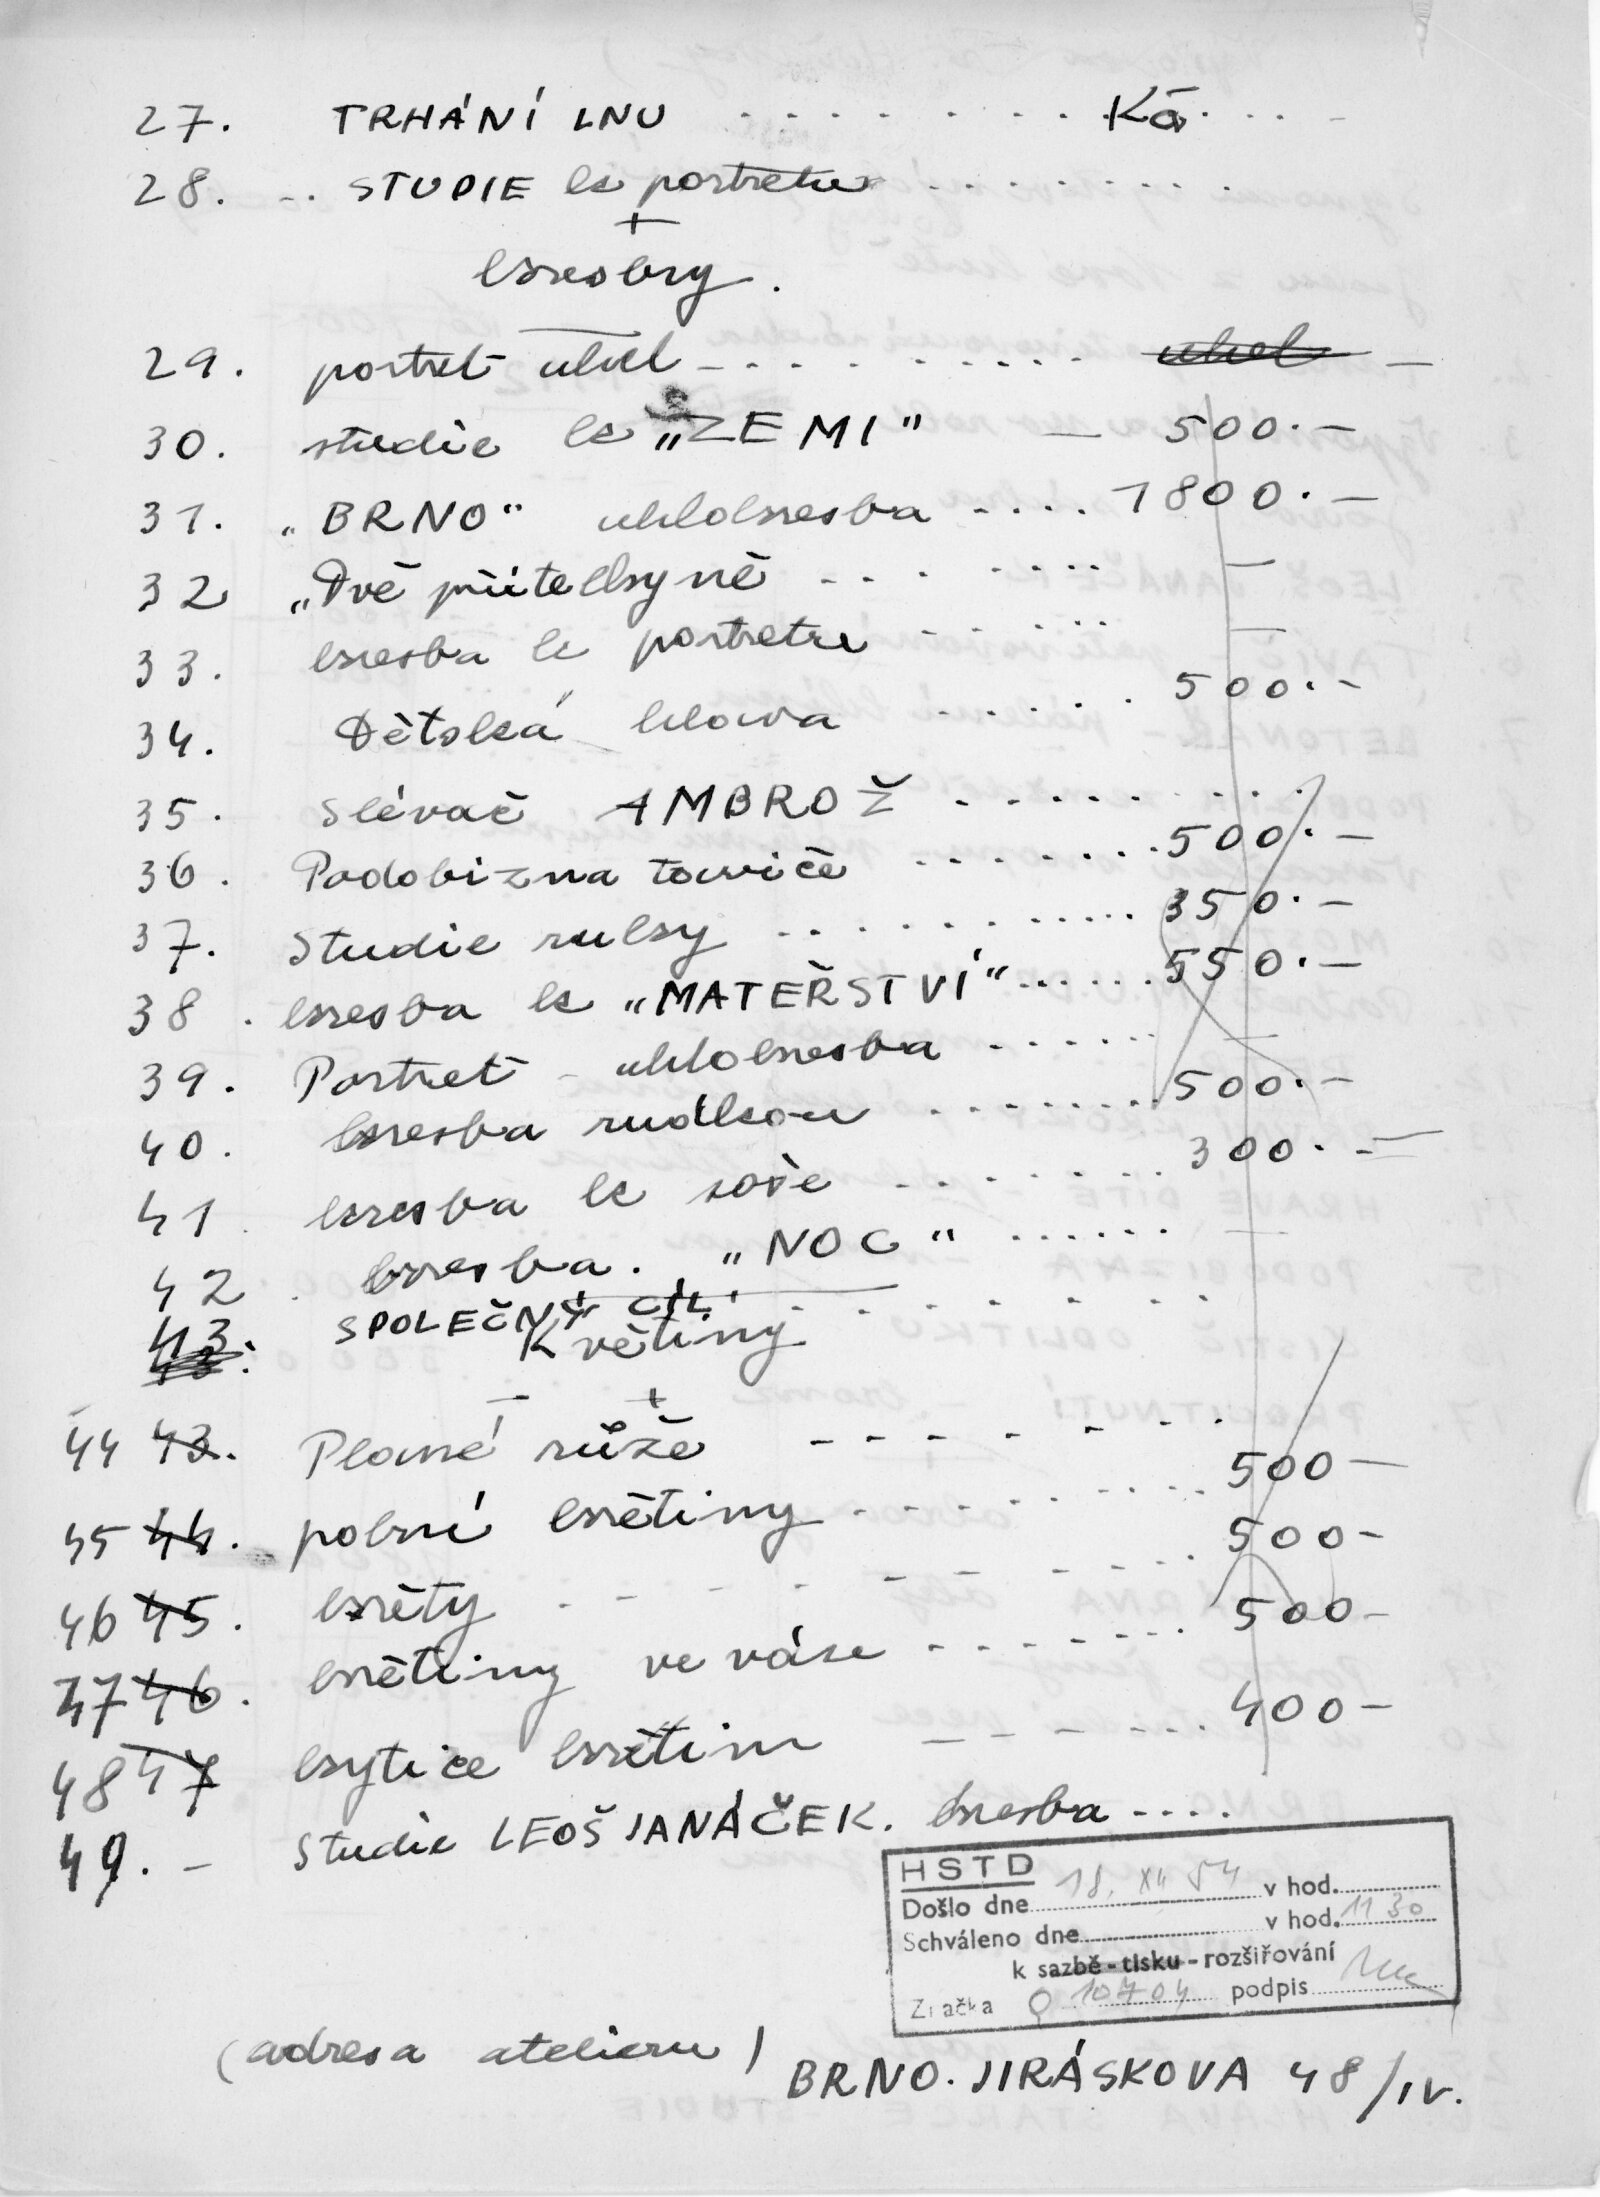 27. TRHÁNÍ LNU . . . . . . . . Kčs . . . -
28. - . . STUDIE k portretu . . . . . . . . .
+
kresby.
29. portret uhel - . . . . . . . . uhel -
30. studie k „ZEMI" - 500.-
31. „BRNO" uhlokresba . . . . 1800.-
32 „Dvě přítelkyně . . . . . . . . -
33. kresba k portretu - . . . . . . -
34. Dětská hlava . . . . . . 500.-
35. Slévač AMBROŽ . . . . . . . . .
36. Podobizna taviče . . . . . . . . 500.-
37. Studie ruky . . . . . . . . . . . . 350.-
38. kresba k „MATEŘSTVÍ" . . . . . . 550.-
39. Portret - uhlokresba . . . . . . -
40. kresba rudkou . . . . . . . . 500.-
41. kresba k soše . . . . . . . 300.-
42. kresba. „NOC" . . . . . . -
43. SPOLEČNÝ CÍL. . . . . . . . .
Květiny
- +
44 43. Plané růže - - - - - - .
45 44. polní květiny . . . . . . . . . 500-
46 45. květy . . - - . - - - . . 500-
47 46. květiny ve váze . . . . . . . 500-
48 47 kytice květin - - - - . . . 400-
49. - Studie LEOŠ JANÁČEK. kresba - . . .
HSTD
Došlo dne 18. XII 54 v hod.
Schváleno dne v hod. 11 30
k sazbě - tisku - rozšiřování
Značka Q 10704 podpis
(adresa atelieru) BRNO. JIRÁSKOVA 48/IV.